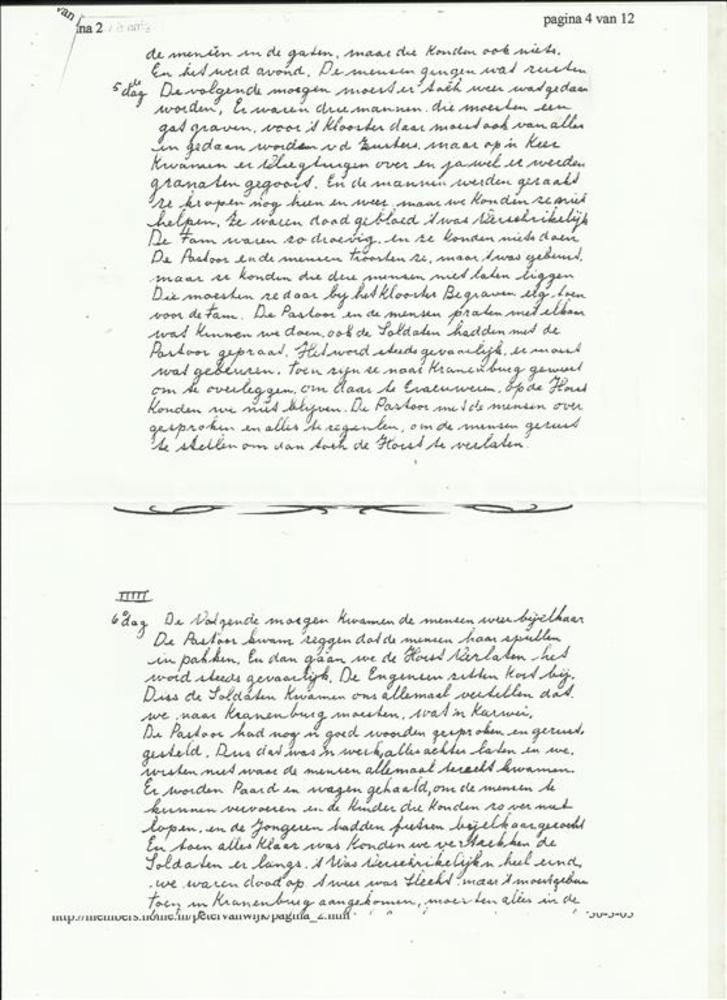 van
ina 2
pagina 4 van 12
de mensen in de gaten, maar die konden ook niets.
En het werd avond. De mensen gingen wat rusten
5de dag De volgende morgen moest er toch weer wat gedaan
worden, Er waren drie mannen. die moesten een
gat graven, voor 't Klooster daar moest ook van alles
in gedaan worden v d Zusters. maar op 'n keer
kwamen er vliegtuigen over en ja wel er werden
granaten gegooit. En de mannen werden geraakt
ze kropen nog heen en weer, maar we konden ze niet
helpen, Ze waren dood gebloed 't was verschrikelijk
De Fam waren zo droevig. en ze konden niets doen
De Pastoor en de mensen troosten ze, maar 't was gebeurt,
maar ze konden die drie mensen niet laten liggen
Die moesten ze daar by het Klooster Begraven, erg. toen
voor de Fam. De Pastoor en de mensen praten met elkaar
wat kunnen we doen, ook de Soldaten hadden met de
Pastoor gepraat. Het word steeds gevaarlijk, er moest
wat gebeuren. toen zijn ze naar Kranenburg geweest
om te overleggen, om daar te Evacueren, op de Horst
konden we niet blijven. De Pastoor met de mensen over
gesproken en alles te regenlen, om de mensen gerust
te stellen om dan toch de Horst te verlaten.
IIIII
6e dag De Volgende morgen kwamen de mensen weer bijelkaar
De Pastoor kwam zeggen dat de mensen haar spullen
in pakken, En dan gaan we de Horst verlaten het
word steeds gevaarlijk. De Engensen zitten kort bij.
Diss de Soldaten kwamen ons allemaal vertellen dat
we naar Kranenburg moesten, wat 'n Karwei,
De Pastoor had nog 'n goed woorden gesproken en gerust.
gesteld. Dus dat was 'n werk, alles achter laten en we,
wisten niet waar de mensen allemaal terecht kwamen.
Er worden Paard en wagen gehaald, om de mensen te
kunnen vervoeren en de Kinder die konden zo ver niet
lopen, en de Jongeren hadden fietsen bijelkaar gezocht
En toen alles klaar was konden we vertrekken de
Soldaten er langs. 't Was verschrikelijk 'n heel eind,
we waren dood op 't weer was slecht. maar 't moest gebeu
toen in Kranenburg aangekomen, moesten alles in de
http://members.home.nl/petervanwijk/pagina_2.htm
30-3-05